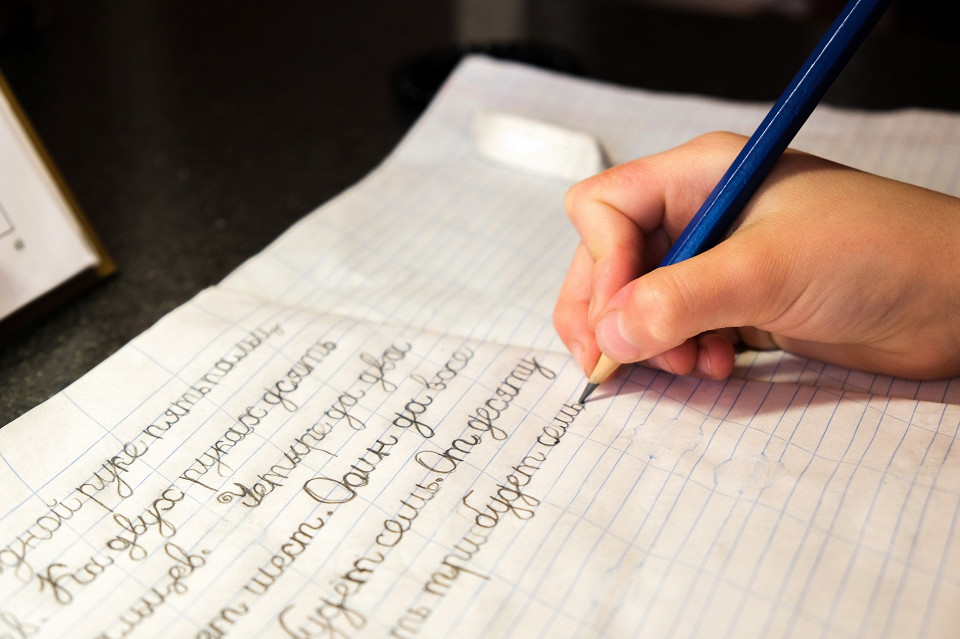 дной руке пять пальц
в. На двух руках десять
альцев. Четыре да два
ет шест. Один да все
будет семь. От десяти
ть три будет семь